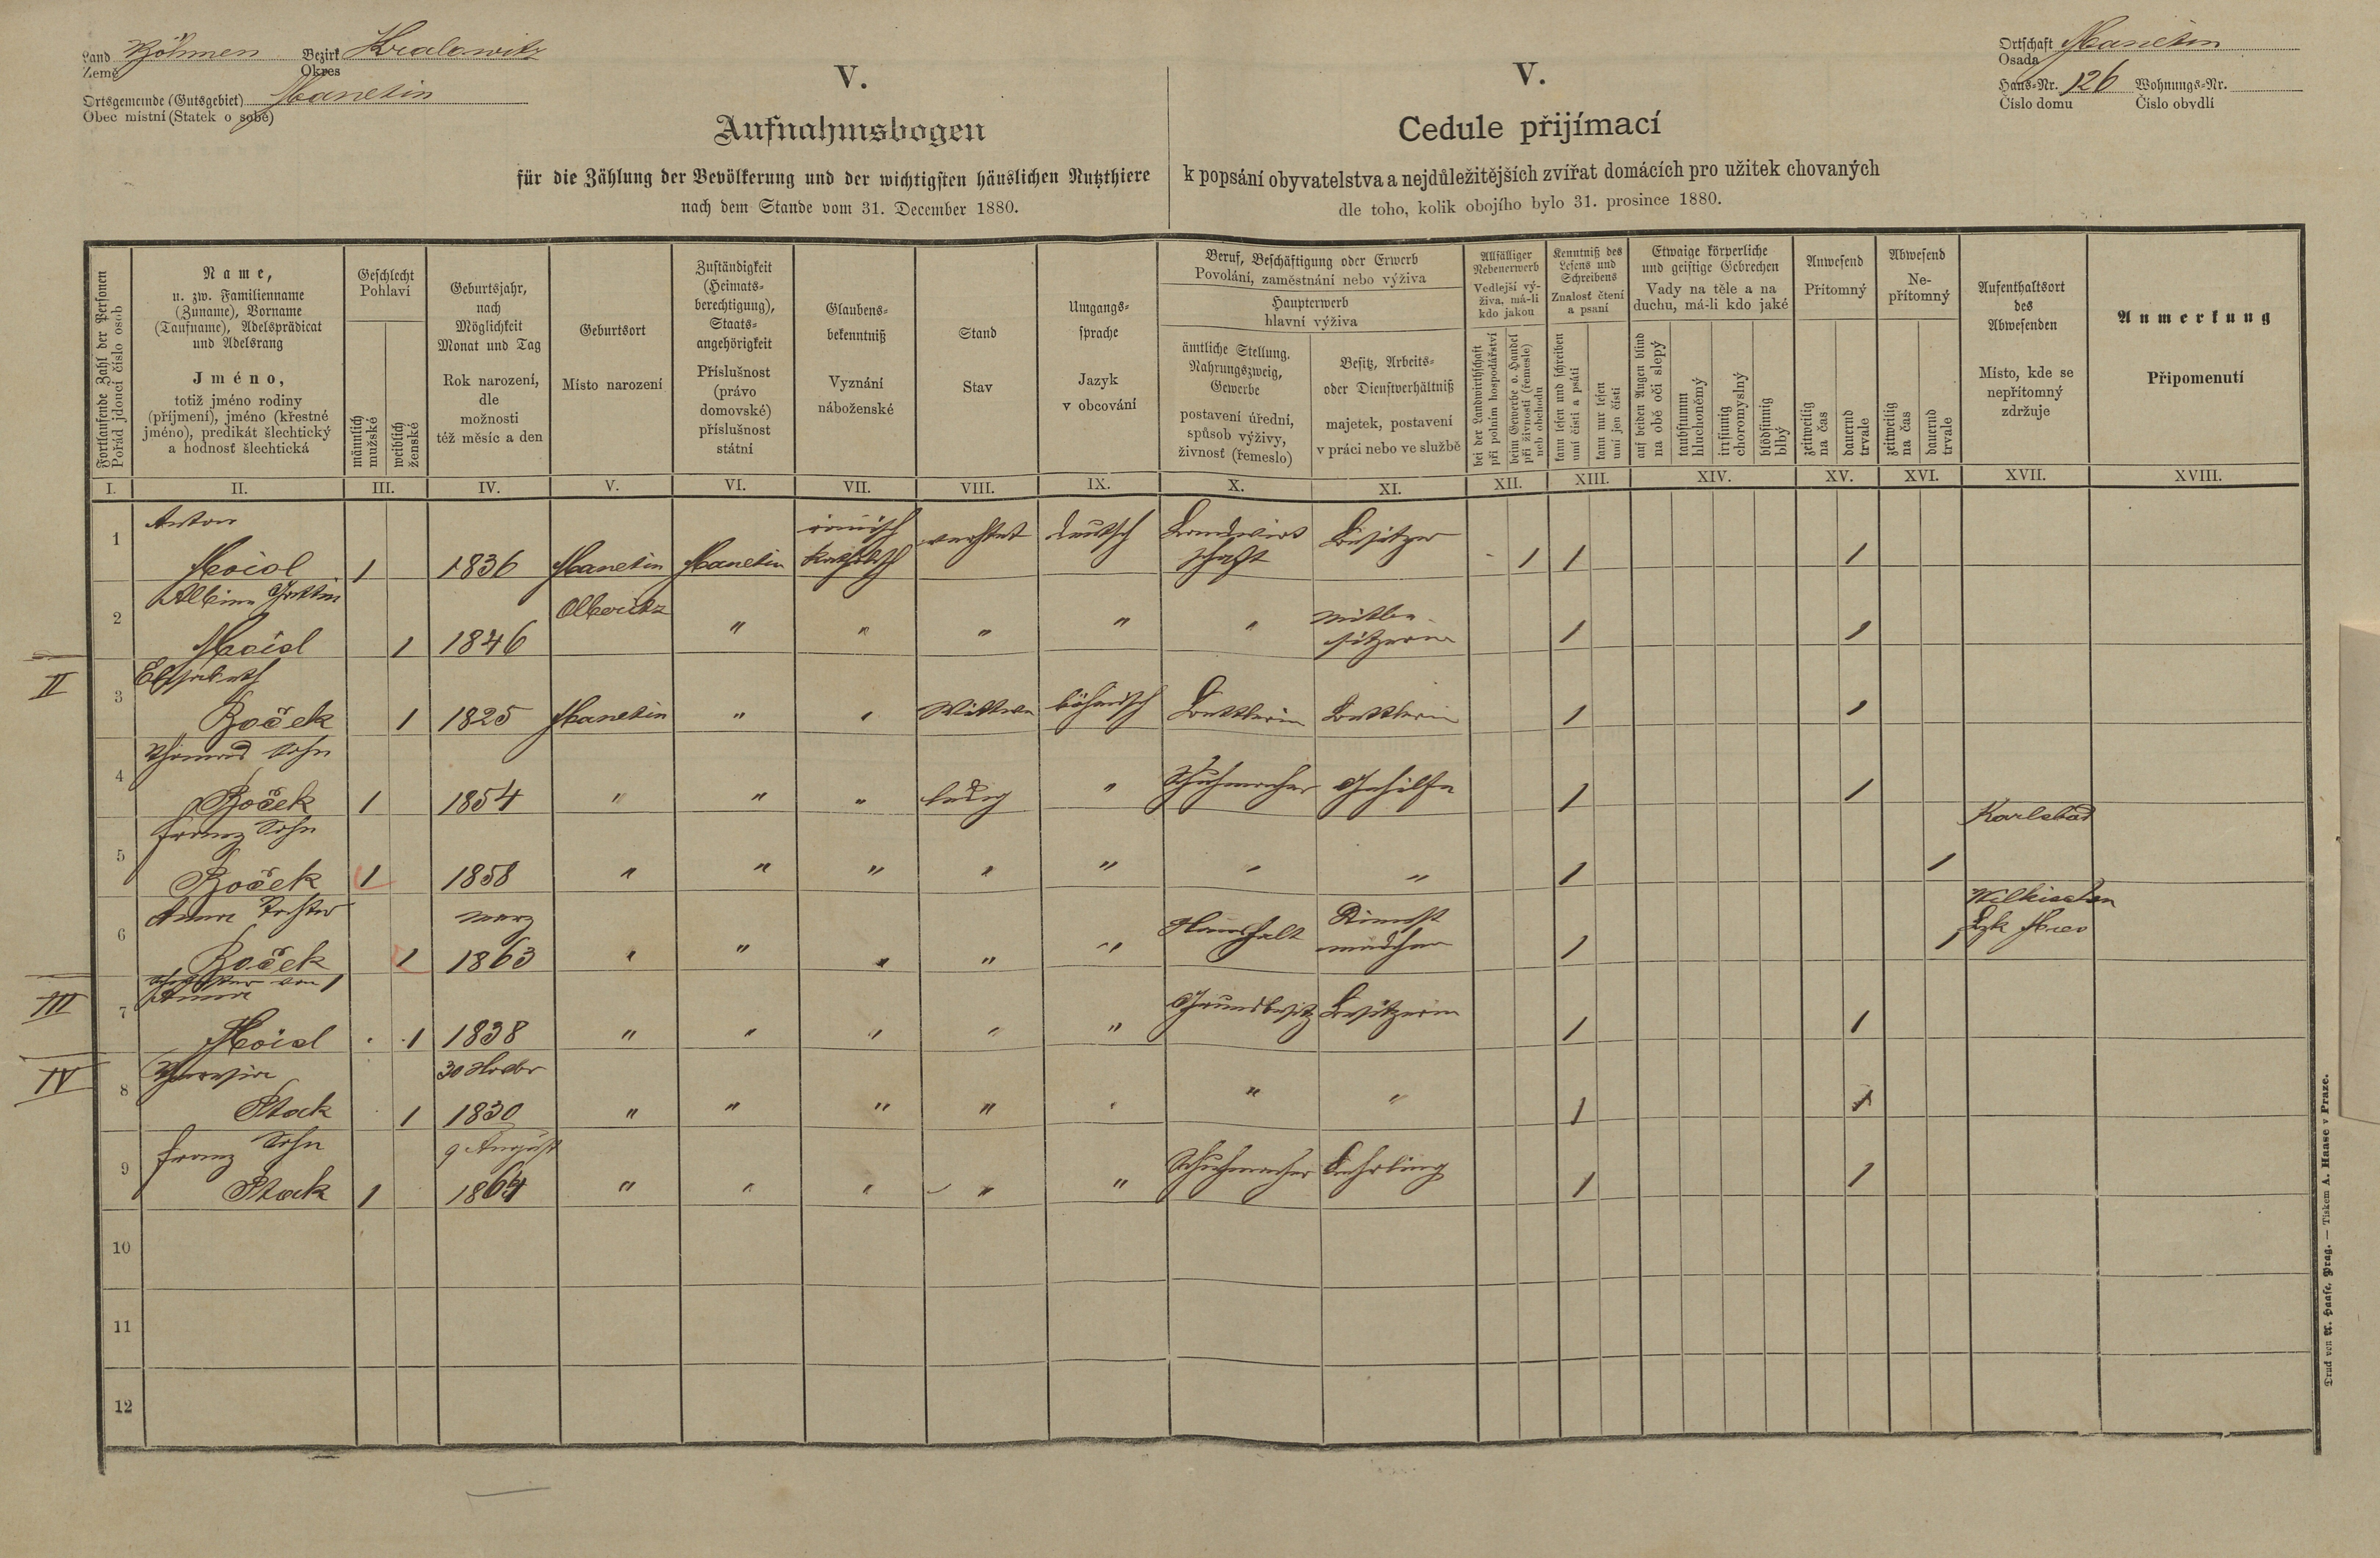 Land Böhmen Bezirk Kralowitz
Země Okres
Ortsgemeinde (Gutsgebiet) Manetin
Obec místní (Statek o sobě)
V.
Aufnahmsbogen
für die Zählung der Bevölkerung und der wichtigsten häuslichen Nutzthiere
nach dem Stande vom 31. December 1880.
V.
Cedule přijímací
k popsání obyvatelstva a nejdůležitějších zvířat domácích pro užitek chovaných
dle toho, kolik obojího bylo 31. prosince 1880.
Ortschaft Manetin
Osada
Haus-Nr. 126 Wohnungs-Nr.
Číslo domu Číslo obydlí
Fortlaufende Zahl der Personen
Pořád jdoucí číslo osob
Name,
u. zw. Familienname
(Zuname), Vorname
(Taufname), Adelsprädicat
und Adelsrang
Jméno,
totiž jméno rodiny
(příjmení), jméno (křestné
jméno), predikát šlechtický
a hodnosť šlechtická
Geschlecht
Pohlaví
männlich
mužské
weiblich
ženské
Geburtsjahr,
nach
Möglichkeit
Monat und Tag
Rok narození,
dle
možnosti
též měsíc a den
Geburtsort
Místo narození
Zuständigkeit
(Heimats-
berechtigung),
Staats-
angehörigkeit
Příslušnost
(právo
domovské)
příslušnost
státní
Glaubens-
bekenntniß
Vyznání
náboženské
Stand
Stav
Umgangs-
sprache
Jazyk
v obcování
Beruf, Beschäftigung oder Erwerb
Povolání, zaměstnání nebo výživa
Haupterwerb
hlavní výživa
ämtliche Stellung,
Nahrungszweig,
Gewerbe
postavení úřední,
spůsob výživy,
živnosť (řemeslo)
Besitz, Arbeits-
oder Dienstverhältniß
majetek, postavení
v práci nebo ve službě
Allfälliger
Nebenerwerb
Vedlejší vý-
živa, má-li
kdo jakou
bei der Landwirthschaft
při polním hospodářství
beim Gewerbe o. Handel
při živnosti (řemesle)
neb obchodu
Kenntniß des
Lesens und
Schreibens
Znalosť čtení
a psaní
kann lesen und schreiben
umí čísti a psáti
kann nur lesen
umí jen čísti
Etwaige körperliche
und geistige Gebrechen
Vady na těle a na
duchu, má-li kdo jaké
auf beiden Augen blind
na obě oči slepý
taubstumm
hluchoněmý
irrsinnig
choromyslný
blödsinnig
blbý
Anwesend
Přítomný
zeitweilig
na čas
dauernd
trvale
Abwesend
Ne-
přítomný
zeitweilig
na čas
dauernd
trvale
Aufenthaltsort
des
Abwesenden
Místo, kde se
nepřítomný
zdržuje
Anmerkung
Připomenutí
I. II. III. IV. V. VI. VII. VIII. IX. X. XI. XII. XIII. XIV. XV. XVI. XVII. XVIII.
Anton römisch Landwirt
1 1 1836 Manetin Manetin katholisch deutsch schaft Besitzer 1 1 1
Albina Gattin
2 1 1846 " " " " " Mitbe-
sitzerin 1 1
II
Elisabeth
3 Boček 1 1825 Manetin " " Wittwe böhmisch Bettlerin Bettlerin 1 1
Thomas Sohn
4 Boček 1 1854 " " " ledig " Schuhmacher Gehilfe 1 1
Franz Sohn Karlsbad
5 Boček 1 1858 " " " " " " " 1 1
Anna Tochter März Dienst
6 Boček 1 1863 " " " " " Haushalt mädchen 1 1 Wilkischen
Bzk Mies
III
Schwester von 1
Anna
7 1 1838 " " " " " Grundbesitz Besitzerin 1 1
IV
Theresia
8 Stock 1 1830 " " " " " " " 1 1
Franz Sohn 9 August
9 Stock 1 1864 " " " " " Schuhmacher Lehrling 1 1
10
11
12
Druck von A. Haase, Prag. — Tiskem A. Haase v Praze.